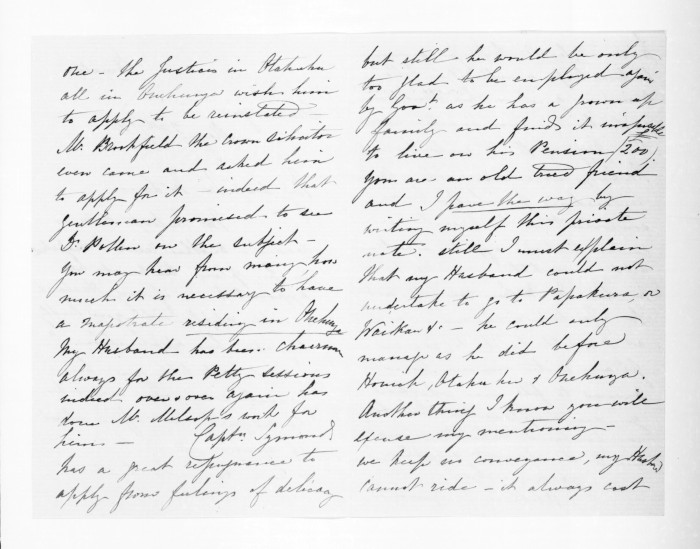 one - the Justices in Otahuhu
all in Onehunga wish him
to apply to be reinstated -
Mr. Brookfield the Crown Solicitor
even came and asked him
to apply for it - indeed that
gentleman promised to see
Dr. Pollen on the subject -
You may hear from many how
much it is necessary to have
a magistrate residing in Onehunga
My Husband has been chairman
always for the Petty sessions
indeed over & over again has
done Mr. work for
him - Captn. Symonds
has a great repugnance to
apply from feelings of delicacy
but still he would be only
too glad to be employed again
by Govt. as he has a grown up
family and finds it impossible
to live on his Pension (200)
You are an old tried friend
and I pave the way by
writing myself this private
note. still I must explain
that my Husband could not
undertake to go to Papakura, or
Waikato - he could only
manage as he did before
Howick, Otahuhu & Onehunga.
Another thing I know you will
excuse my mentioning -
we keep no conveyance, my Husbd
cannot ride - it always cost